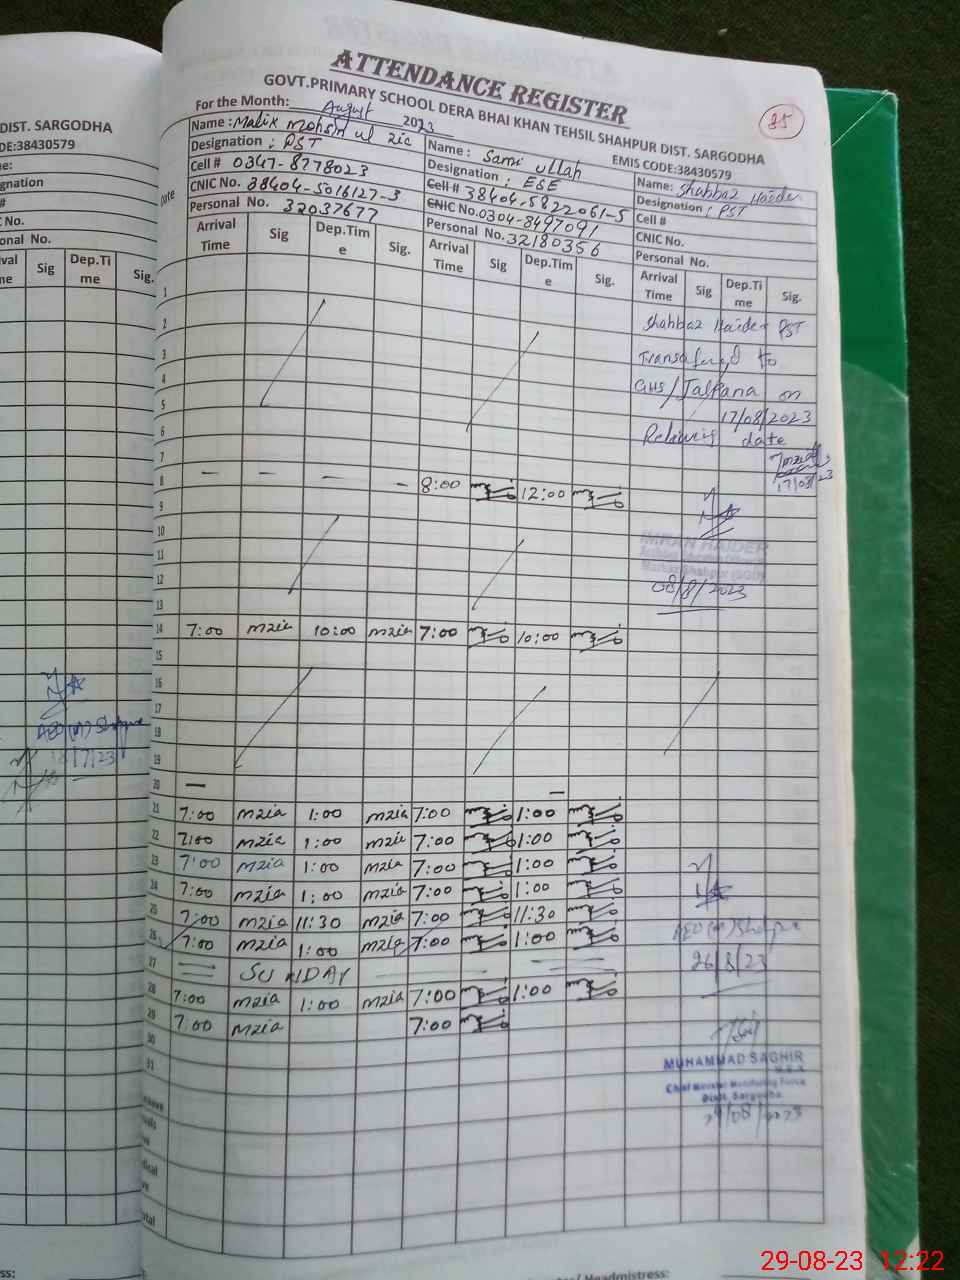 ATTENDANCE REGISTER
GOVT.PRIMARY SCHOOL DERA BHAI KHAN TEHSIL SHAHPUR DIST. SARGODHA
For the Month: August 2023
EMIS CODE:38430579
85
DIST. SARGODHA
DE:38430579
me:
ignation
#
C No.
onal No.
val
me
Sig
Dep.Ti
me
Sig.
Date
Name : Malik Mohsin ul
Designation : PST
Cell # 0347-8778023
CNIC No. 38404-5016127-3
Personal No. 32037677
Name : Sami ullah
Designation : ESE
Cell # 38404-5822061-5
CNIC No. 0304-8497091
Personal No. 32180356
Name: Shahbaz Haider
Designation : PST
Cell #
CNIC No.
Personal No.
Arrival Time Sig Dep.Tim e Sig. Arrival Time Sig Dep.Tim e Sig. Arrival Time Sig Dep.Ti me Sig.
1
2
3
4
5
6
7
Shahbaz Haider PST
Transafered to
GHS/Jalpana on
17/08/2023
Relaiving date
17/08/23
8 — — — — 8:00 12:00
9
10
11
12
13
IMRAN HAIDER
08/8/2023
14 7:00 mzia 10:00 mzia 7:00 10:00
15
16
17
18
19
20 — —
21 7:00 mzia 1:00 mzia 7:00 1:00
22 7:00 mzia 1:00 mzia 7:00 1:00
23 7:00 mzia 1:00 mzia 7:00 1:00
24 7:00 mzia 1:00 mzia 7:00 1:00
25 7:00 mzia 11:30 mzia 7:00 11:30
26 7:00 mzia 1:00 mzia 7:00 1:00
27 SUNDAY
28 7:00 mzia 1:00 mzia 7:00 1:00
29 7:00 mzia 7:00
30
31
AEO (M) Shahpur
26/8/23
MUHAMMAD SAGHIR
Chief Minister Monitoring Force
Distt. Sargodha
29/08/2023
AEO (M) Shahpur
18/7/23
Headmistress:
29-08-23 12:22